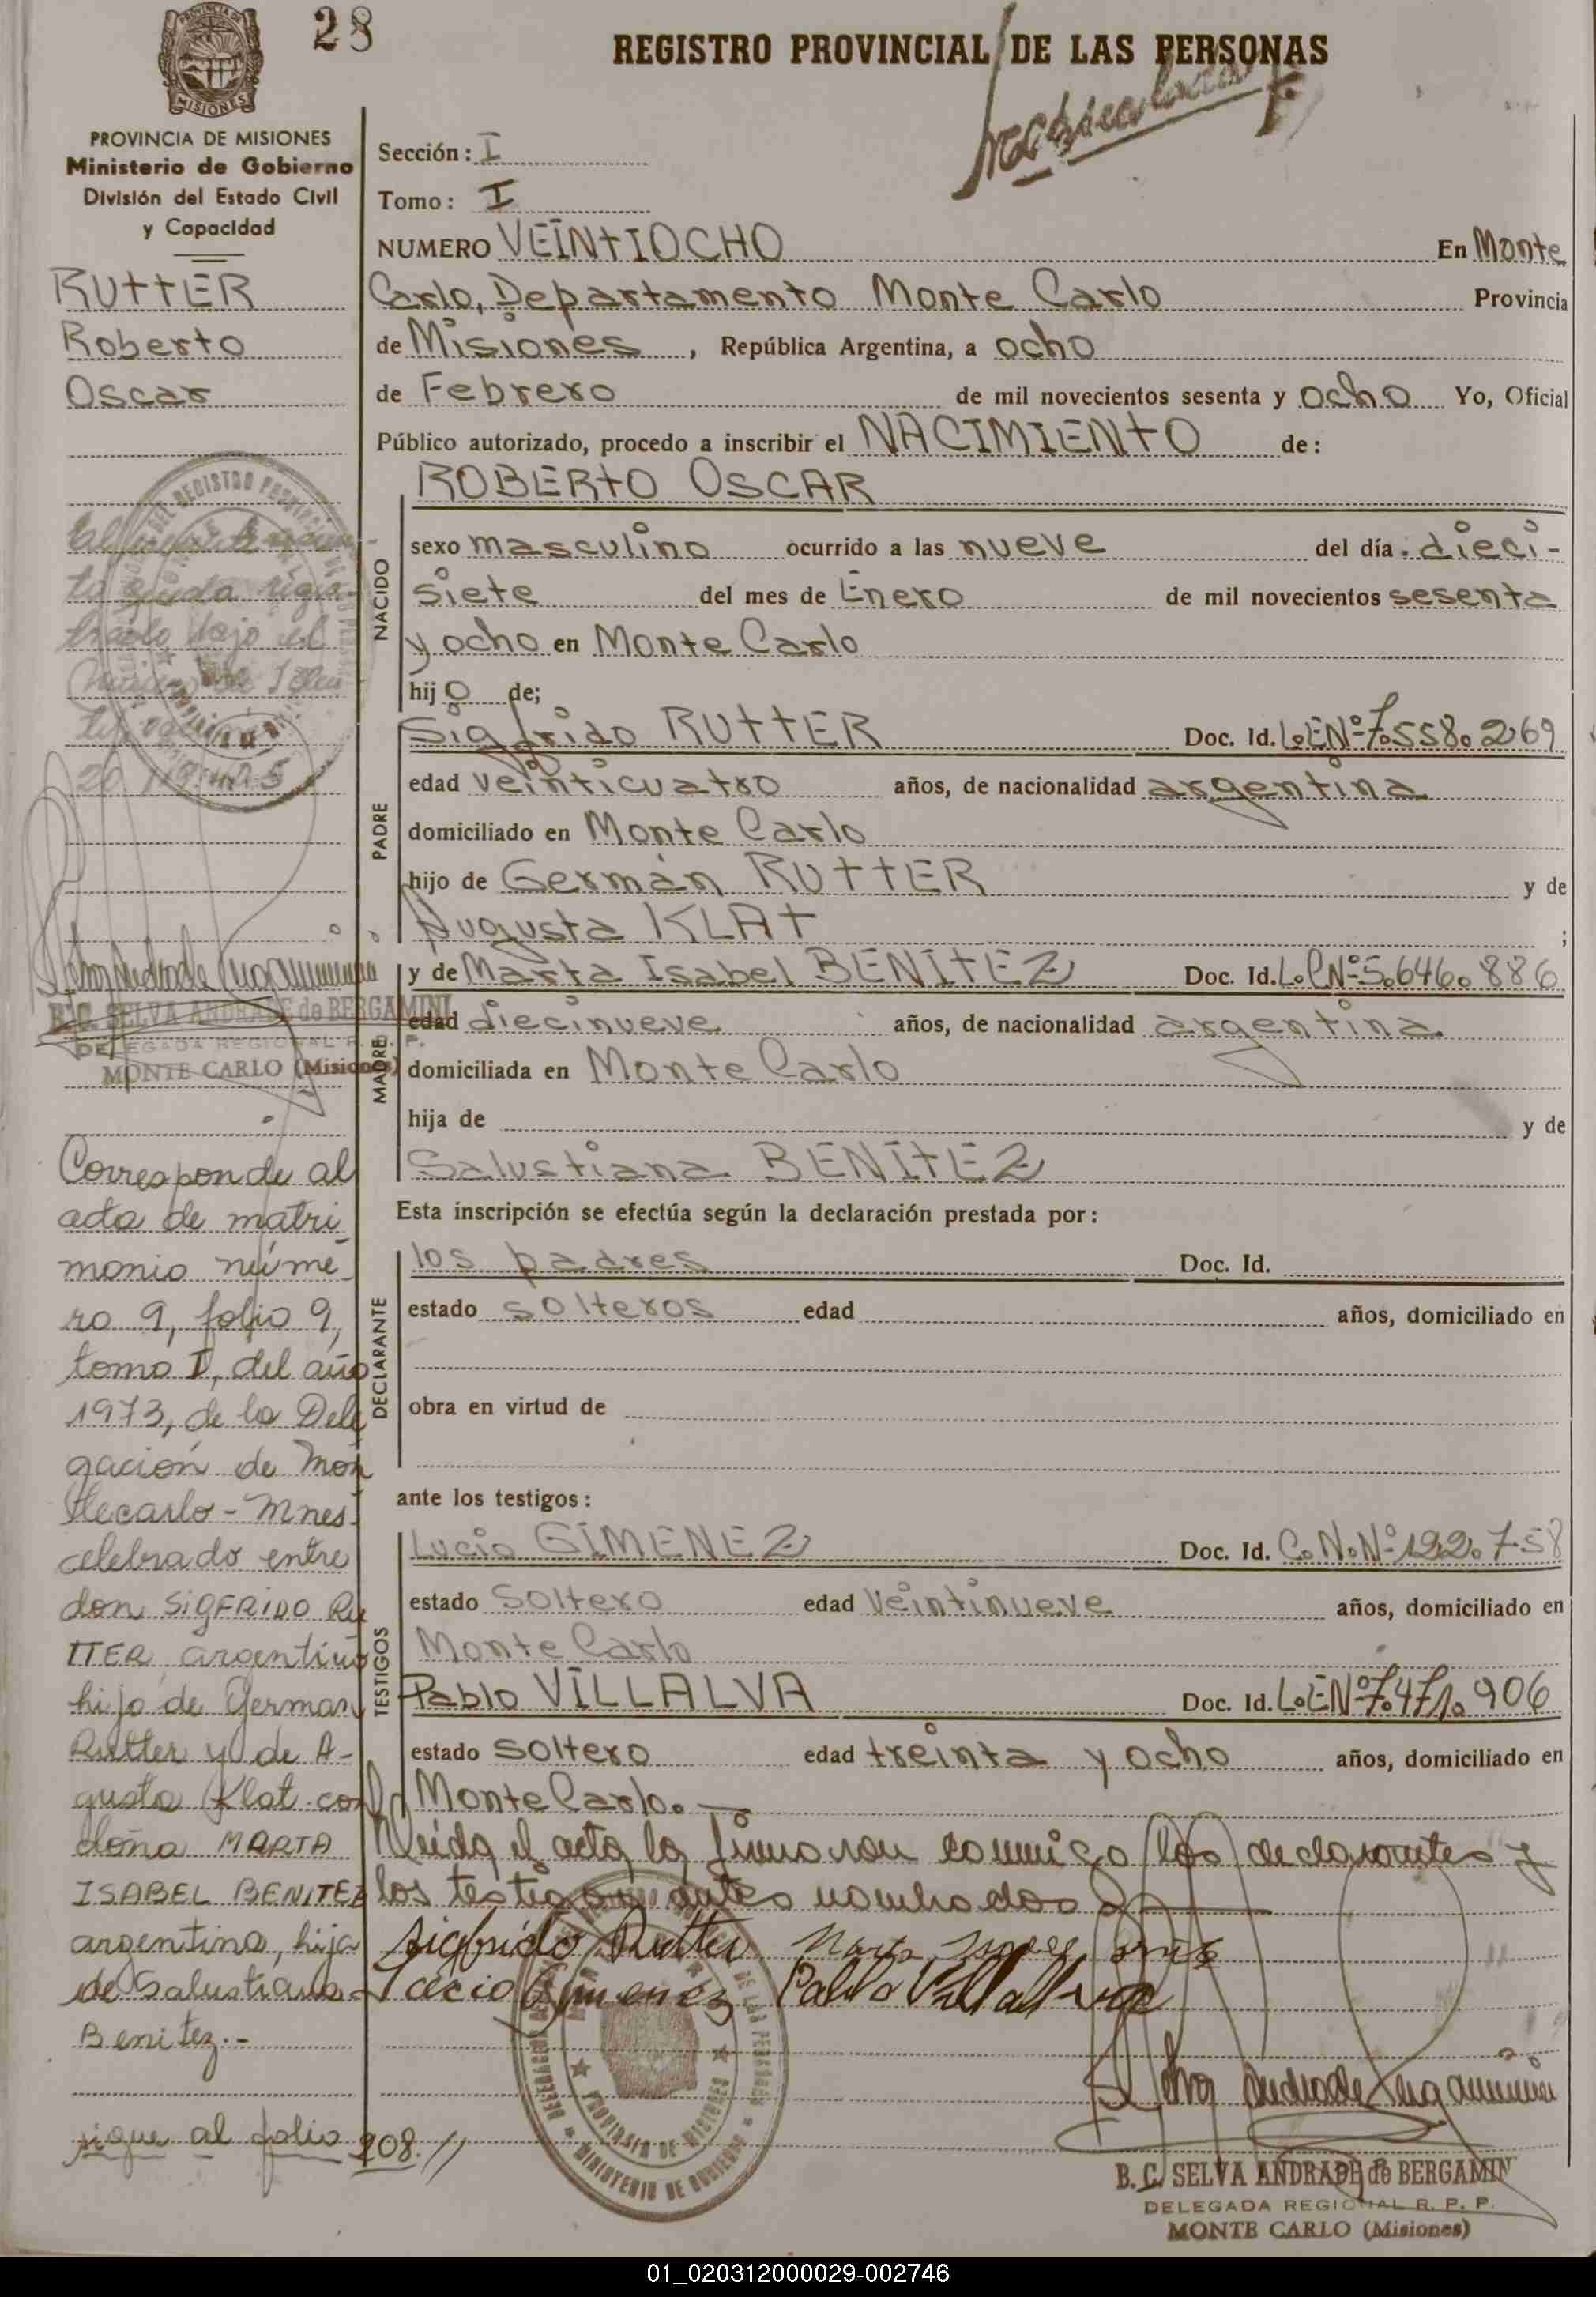 28
REGISTRO PROVINCIAL DE LAS PERSONAS
PROVINCIA DE MISIONES
Ministerio de Gobierno
División del Estado Civil
y Capacidad
RUTTER
Roberto
Oscar
B. C. SELVA ANDRADE de BERGAMINI
DELEGADA REGIONAL R. P. P.
MONTE CARLO (Misiones)
Corresponde al
acta de matri
monio núme
ro 9, folio 9,
tomo I, del año
1973, de la Dele
gación de Mon
tecarlo - Mnes.
celebrado entre
don SIGFRIDO RU
TTER argentino
hijo de German
Rutter y de A-
gusta Klat con
doña MARTA
ISABEL BENITEZ
argentina, hija
de Salustiana
Benitez.-
sigue al folio 208.//
Sección: I
Tomo: I
NUMERO VEINTIOCHO En Monte
Carlo, Departamento Monte Carlo Provincia
de Misiones, República Argentina, a ocho
de Febrero de mil novecientos sesenta y ocho Yo, Oficial
Público autorizado, procedo a inscribir el NACIMIENTO de:
NACIDO
ROBERTO OSCAR
sexo masculino ocurrido a las nueve del día dieci-
siete del mes de Enero de mil novecientos sesenta
y ocho en Monte Carlo
hijo de;
PADRE
Sigfrido RUTTER Doc. Id. L.E.Nº 7.558.269
edad veinticuatro años, de nacionalidad argentina
domiciliado en Monte Carlo
hijo de Germán RUTTER y de
Augusta KLAT ;
MADRE
y de Marta Isabel BENITEZ Doc. Id. L.C.Nº 5.646.886
edad diecinueve años, de nacionalidad argentina
domiciliada en Monte Carlo
hija de y de
Salustiana BENITEZ
Esta inscripción se efectúa según la declaración prestada por:
DECLARANTE
los padres Doc. Id.
estado solteros edad años, domiciliado en
obra en virtud de
ante los testigos:
TESTIGOS
Lucio GIMENEZ Doc. Id. C.N.Nº 122.758
estado Soltero edad Veintinueve años, domiciliado en
Monte Carlo
Pablo VILLALVA Doc. Id. L.E.Nº 7.471.906
estado soltero edad treinta y ocho años, domiciliado en
Monte Carlo.
Leida el acta la firmaron conmigo los declarantes y
los testigos antes nombrados
Sigfrido Rutter
Gimenez Pablo Villalva
B. C. SELVA ANDRADE de BERGAMINI
DELEGADA REGIONAL R. P. P.
MONTE CARLO (Misiones)
01_020312000029-002746